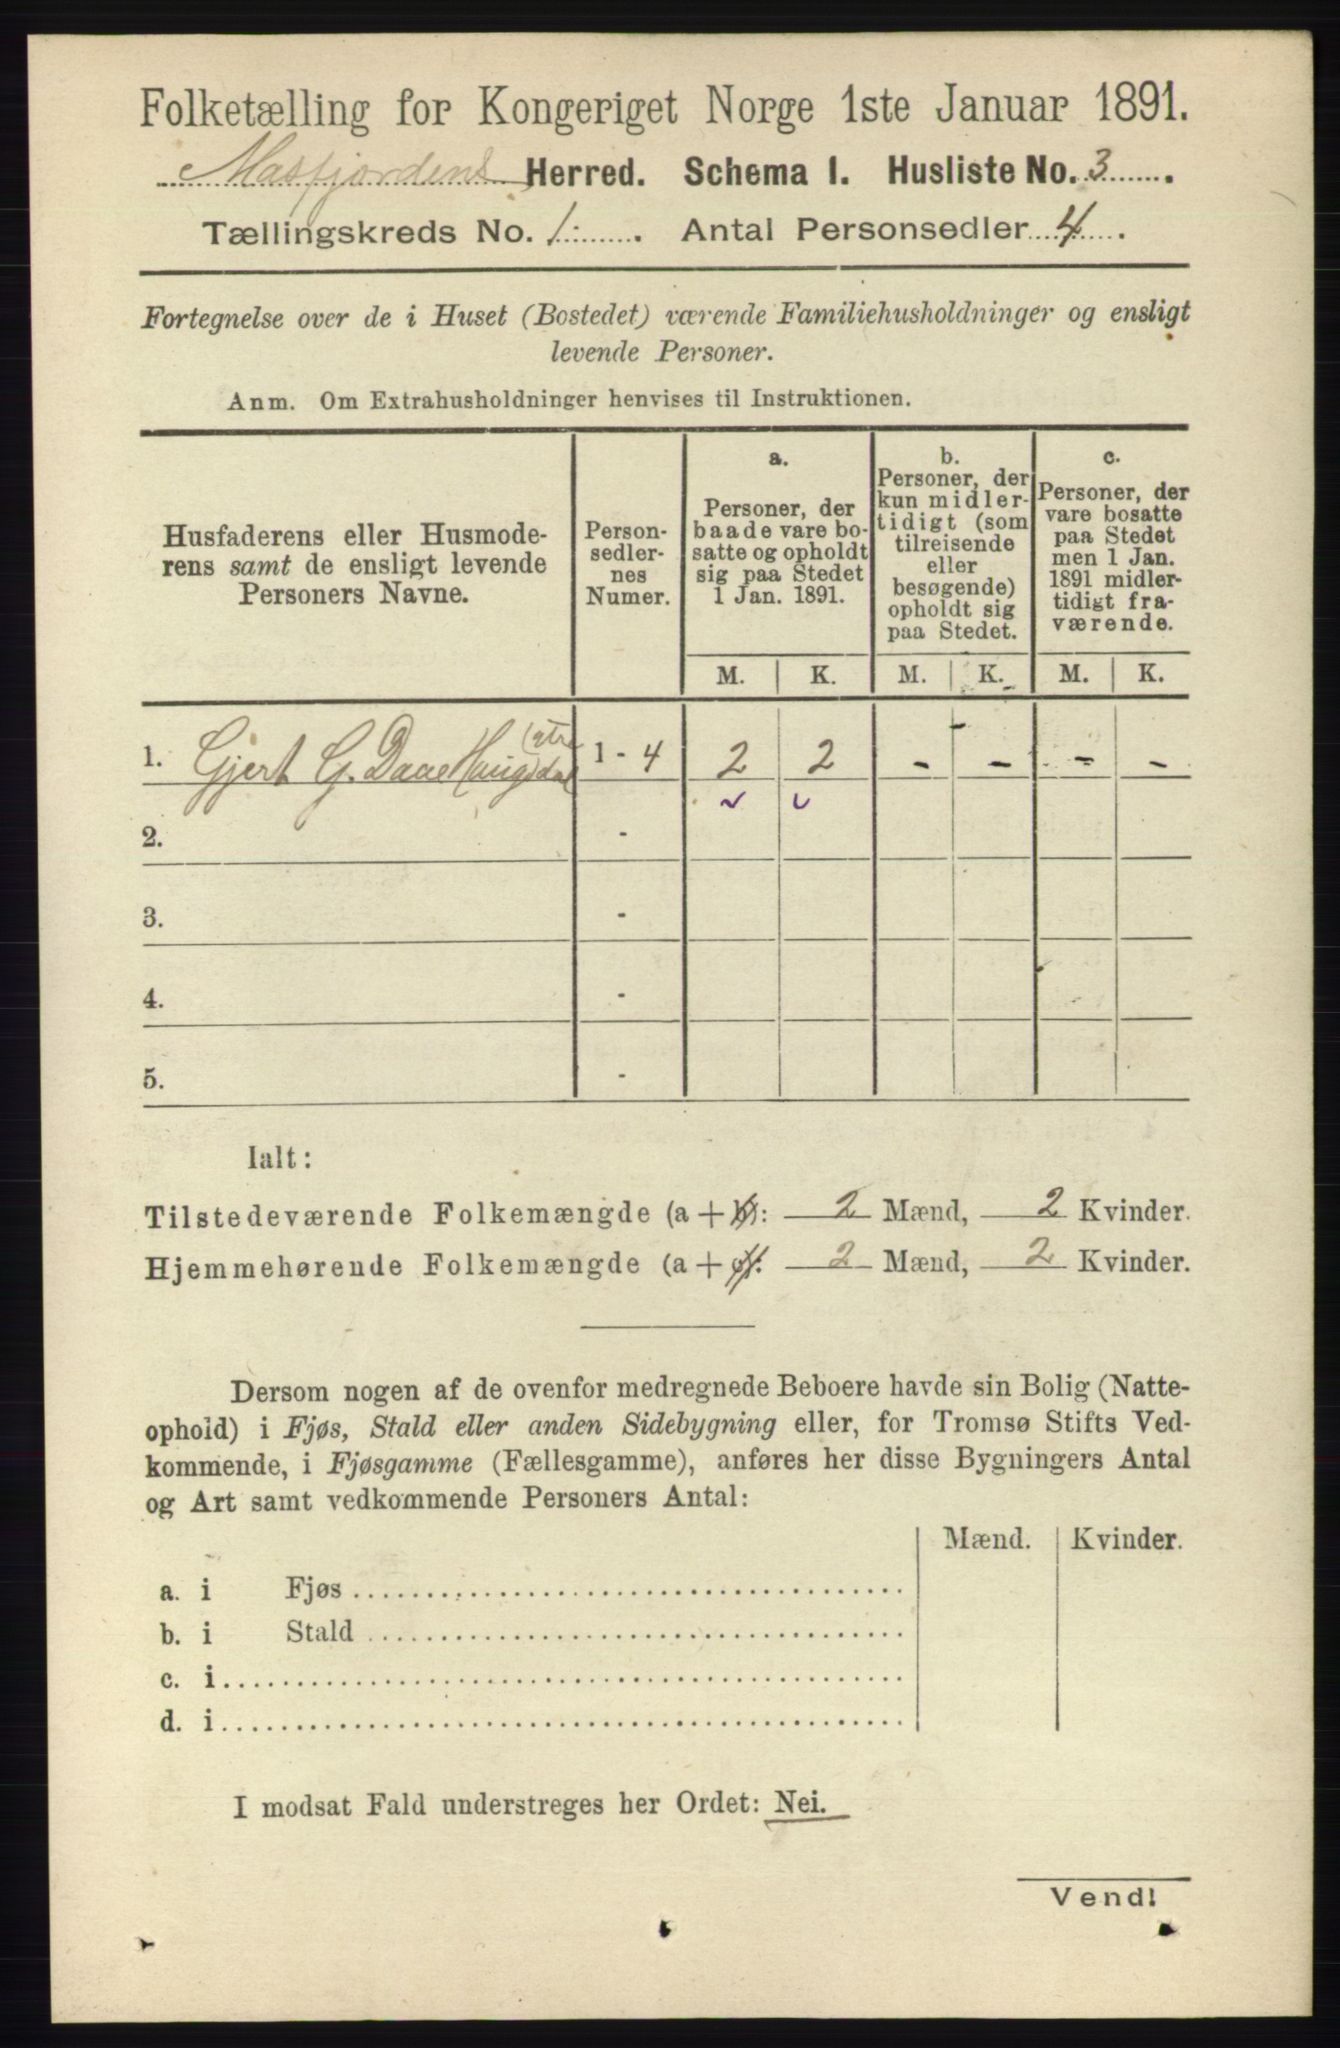 Folketælling for Kongeriget Norge 1ste Januar 1891.
Masfjordens Herred. Schema I. Husliste No. 3.
Tællingskreds No. 1. Antal Personsedler 4.
Fortegnelse over de i Huset (Bostedet) værende Familiehusholdninger og ensligt
levende Personer.
Anm. Om Extrahusholdninger henvises til Instruktionen.
Husfaderens eller Husmode-
rens samt de ensligt levende
Personers Navne.
Person-
sedler-
nes
Numer.
a.
Personer, der
baade vare bo-
satte og opholdt
sig paa Stedet
1 Jan. 1891.
b.
Personer, der
kun midler-
tidigt (som
tilreisende
eller
besøgende)
opholdt sig
paa Stedet.
c.
Personer, der
vare bosatte
paa Stedet
men 1 Jan.
1891 midler-
tidigt fra-
værende.
M. K. M. K. M. K.
1. Gjert G. Daae Haugsdal 1 - 4 2 2 - - - -
2. -
3. -
4. -
5. -
Ialt:
Tilstedeværende Folkemængde (a + b): 2 Mænd, 2 Kvinder.
Hjemmehørende Folkemængde (a + c): 2 Mænd, 2 Kvinder.
Dersom nogen af de ovenfor medregnede Beboere havde sin Bolig (Natte-
ophold) i Fjøs, Stald eller anden Sidebygning eller, for Tromsø Stifts Ved-
kommende, i Fjøsgamme (Fællesgamme), anføres her disse Bygningers Antal
og Art samt vedkommende Personers Antal:
Mænd. Kvinder.
a. i Fjøs
b. i Stald
c. i
d. i
I modsat Fald understreges her Ordet: Nei.
Vend!